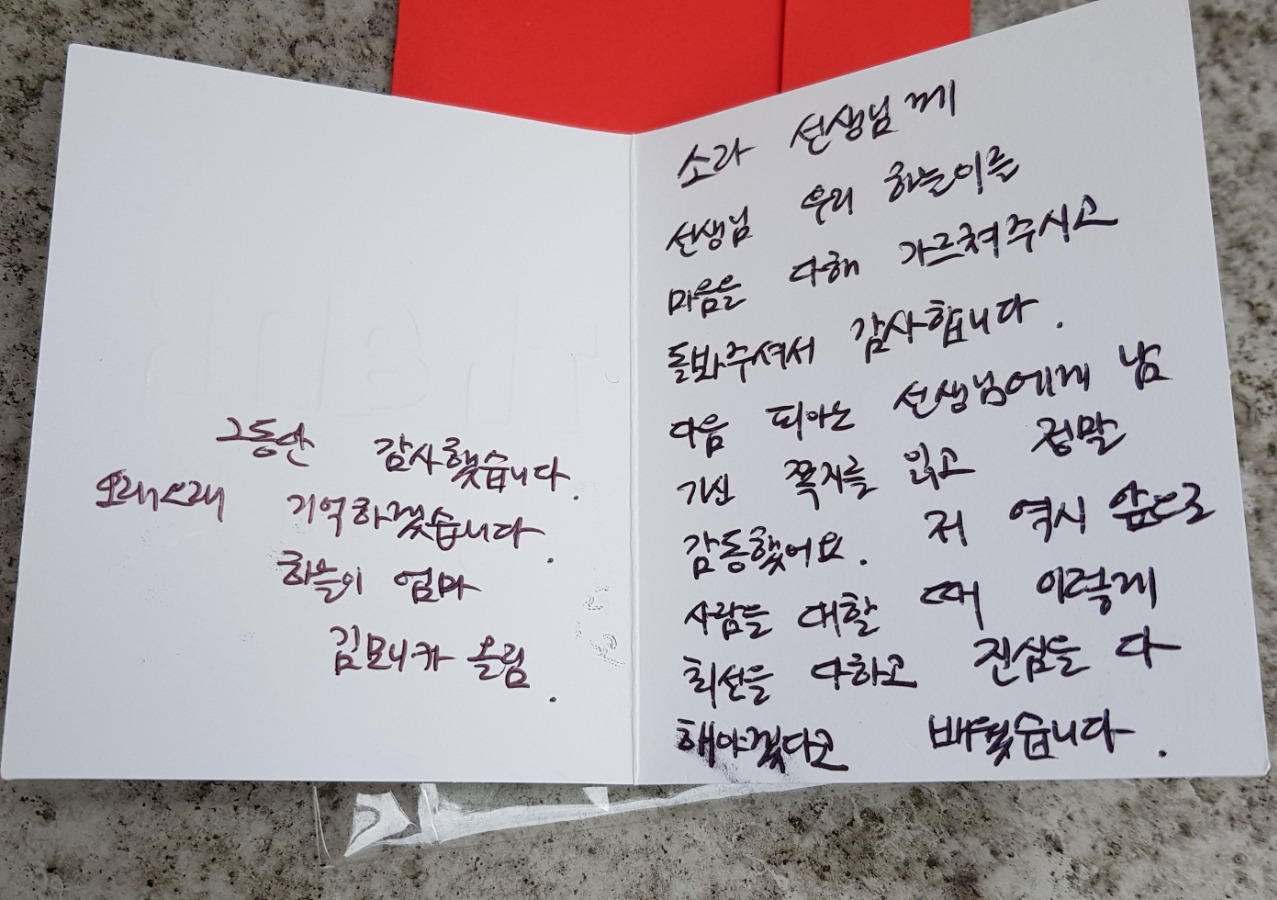 소라 선생님께
선생님 우리 하늘이를
마음을 다해 가르쳐주시고
돌봐주셔서 감사합니다.
다음 피아노 선생님에게 남
기신 쪽지를 읽고 정말
감동했어요. 저 역시 앞으로
사람들 대할 때 이렇게
최선을 다하고 진심을 다
해야겠다고 배웠습니다.
그동안 감사했습니다.
오래오래 기억하겠습니다.
하늘이 엄마
김모니카 올림.